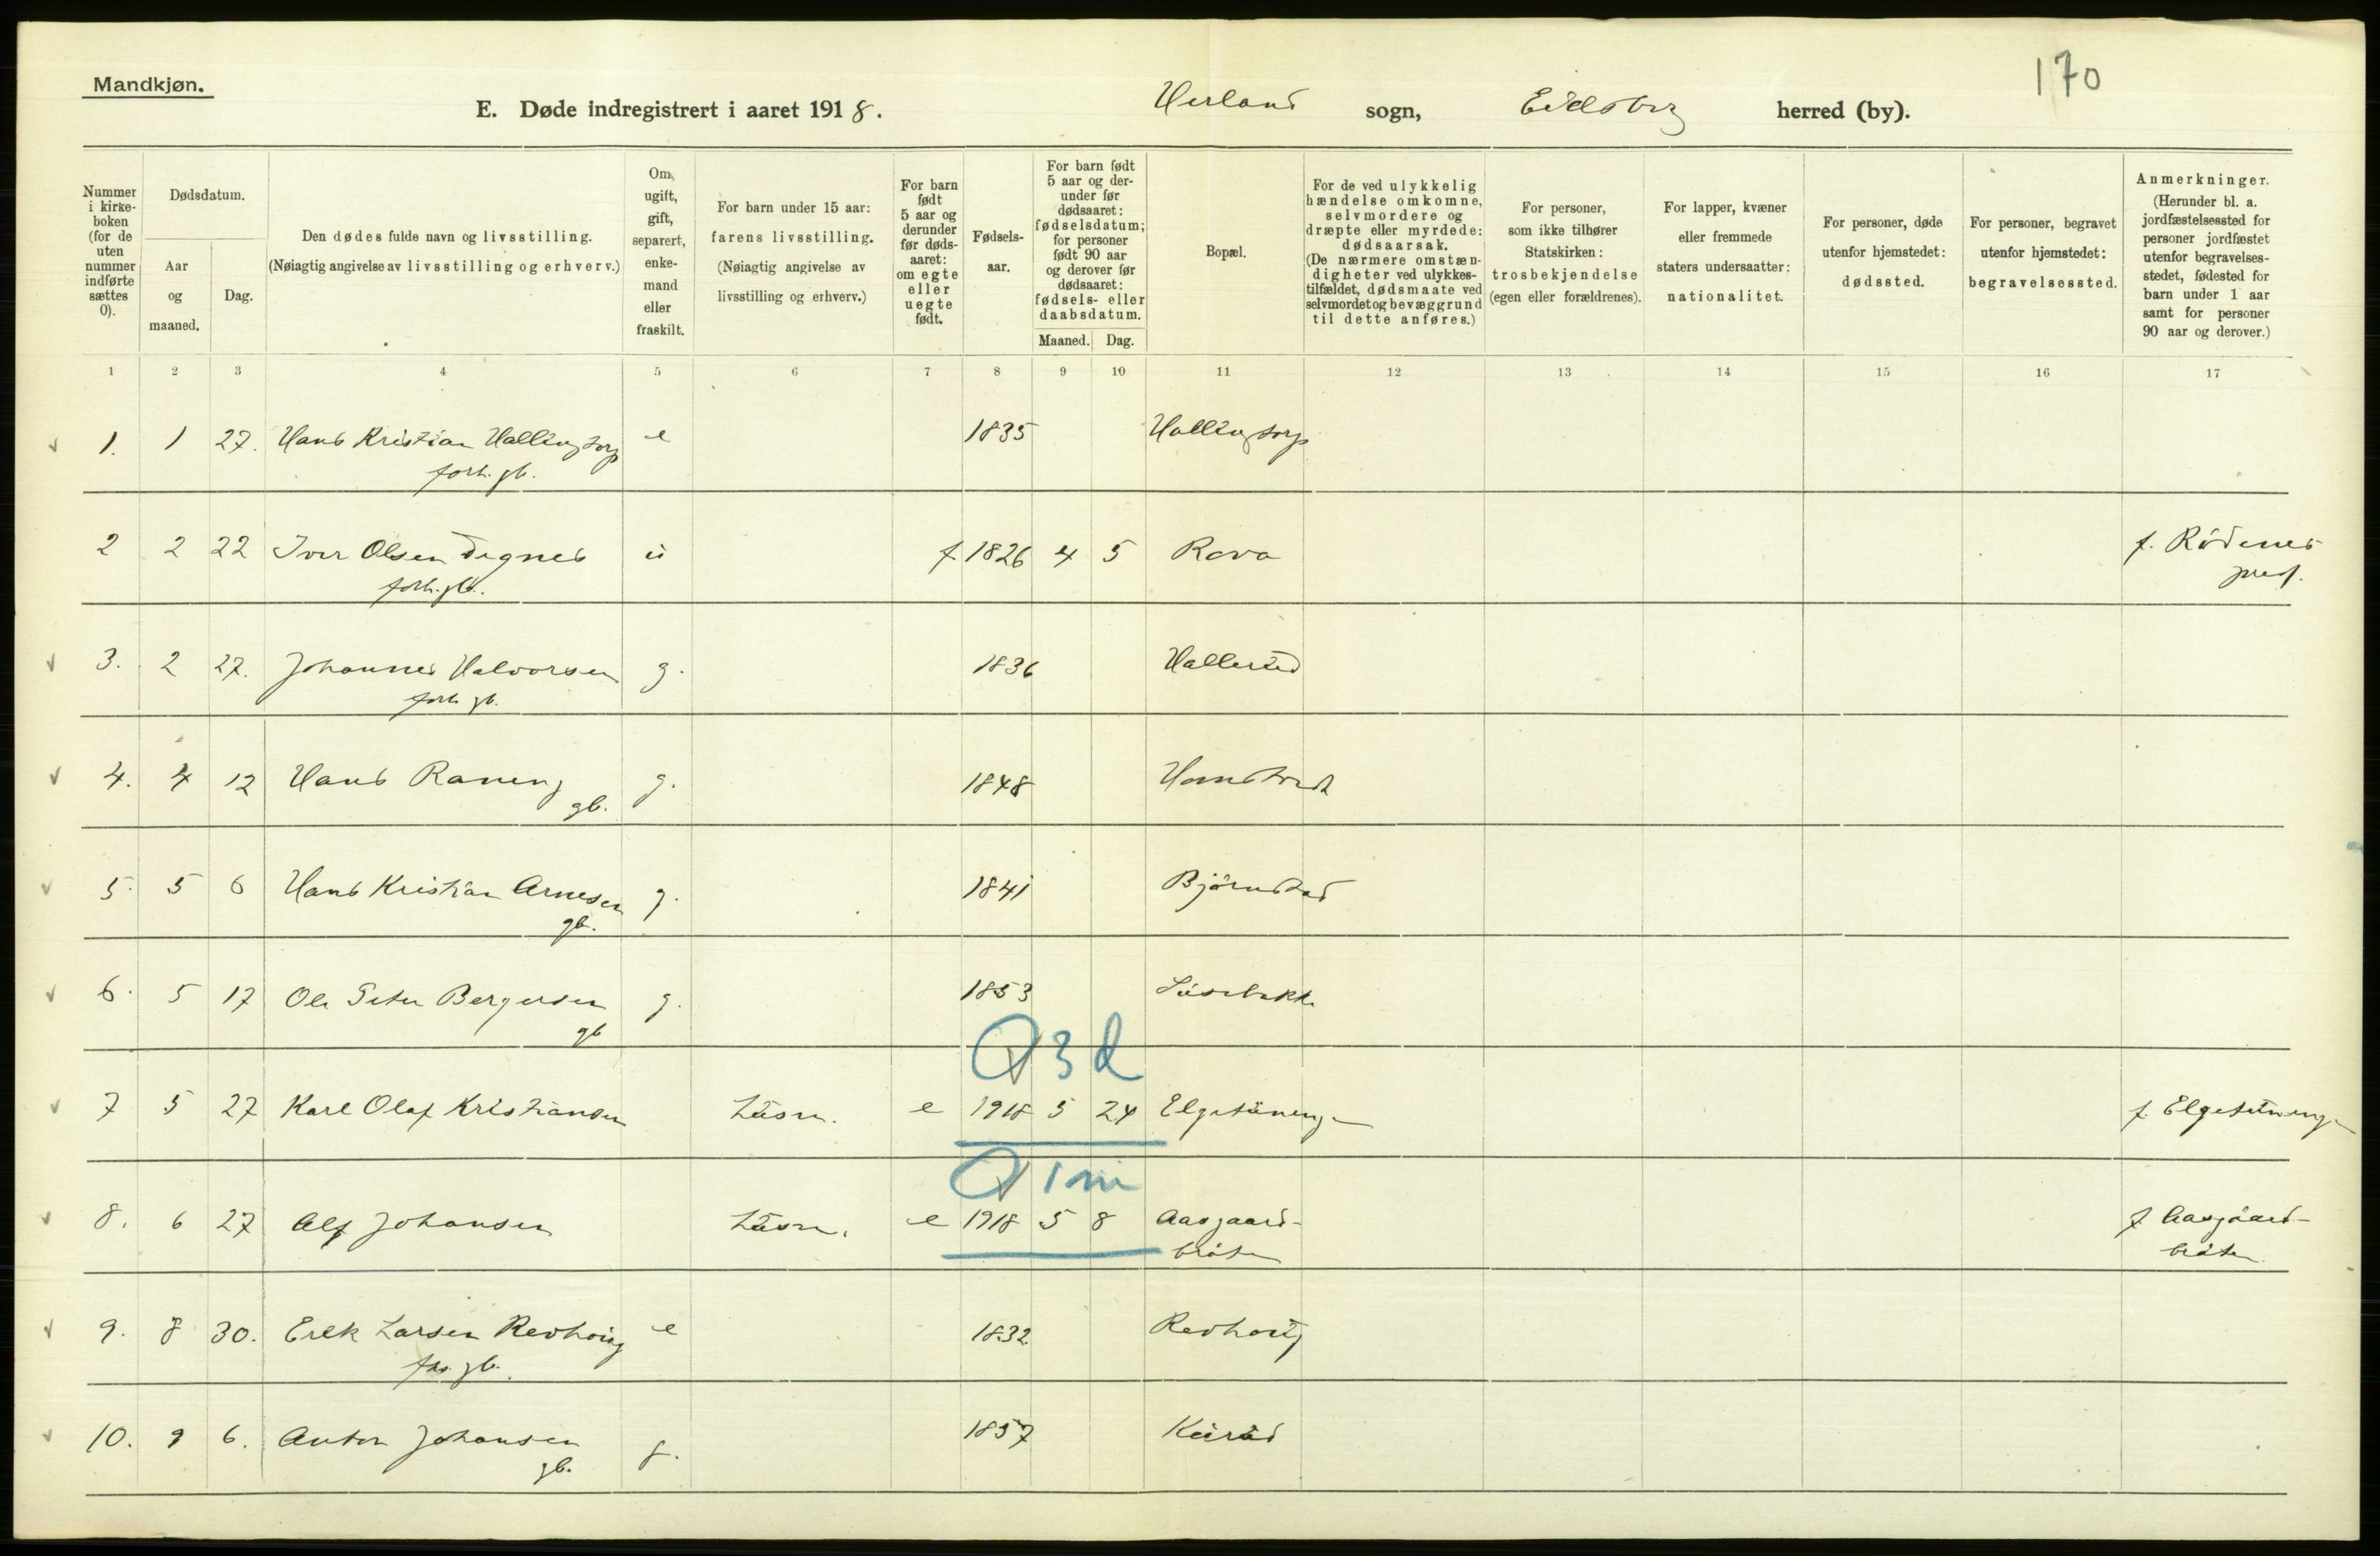 170
Mandkjøn.
E. Døde indregistrert i aaret 1918. Herland sogn, Eidsberg herred (by).
Nummer i kirkeboken (for de uten nummer indførte sættes 0).
Dødsdatum.
Aar og maaned.
Dag.
Den dødes fulde navn og livsstilling.
(Nøiagtig angivelse av livsstilling og erhverv.)
Om ugift, gift, separert, enkemand eller fraskilt.
For barn under 15 aar: farens livsstilling. (Nøiagtig angivelse av livsstilling og erhverv.)
For barn født 5 aar og derunder før dødsaaret: om egte eller uegte født.
Fødselsaar.
For barn født 5 aar og derunder før dødsaaret: fødselsdatum; for personer født 90 aar og derover før dødsaaret: fødsels- eller daabsdatum.
Maaned. Dag.
Bopæl.
For de ved ulykkelig hændelse omkomne, selvmordere og dræpte eller myrdede: dødsaarsak. (De nærmere omstændigheter ved ulykkestilfældet, dødsmaate ved selvmordet og bevæggrund til dette anføres.)
For personer, som ikke tilhører Statskirken: trosbekjendelse (egen eller forældrenes).
For lapper, kvæner eller fremmede staters undersaatter: nationalitet.
For personer, døde utenfor hjemstedet: dødssted.
For personer, begravet utenfor hjemstedet: begravelsessted.
Anmerkninger. (Herunder bl. a. jordfæstelsessted for personer jordfæstet utenfor begravelsesstedet, fødested for barn under 1 aar samt for personer 90 aar og derover.)
1 2 3 4 5 6 7 8 9 10 11 12 13 14 15 16 17
1. 1 27. Hans Kristian Hallingtorp e 1835 Hallingtorp
forh. gb.
2 2 22 Iver Olsen Tegnes u f. 1826 4 5 Rova f. Rödenes
forh. gb. prest.
3. 2 27. Johannes Halvorsen g. 1836 Hallersted
forh. gb.
4. 4 12 Hans Raneng g. 1848
gb.
5. 5 6 Hans Kristian Arnesen g. 1841 Björnstad
gb.
6. 5 17 Ole Peter Bergersen g. 1853 Lusebakke
gb
3 d
7 5 27 Karl Olaf Kristiansen Husm. e 1918 5 24 Elgetuneng f. Elgetuneng
1 m
8. 6 27 Alf Johansen Husm. e 1918 5 8 Aasgaard- f Aasgaard-
bråten bråten
9. 8 30. Erik Larsen Revhoug e 1832 Revhoug
for. gb.
10. 9 6. Anton Johansen g. 1857 Kurud
gb.